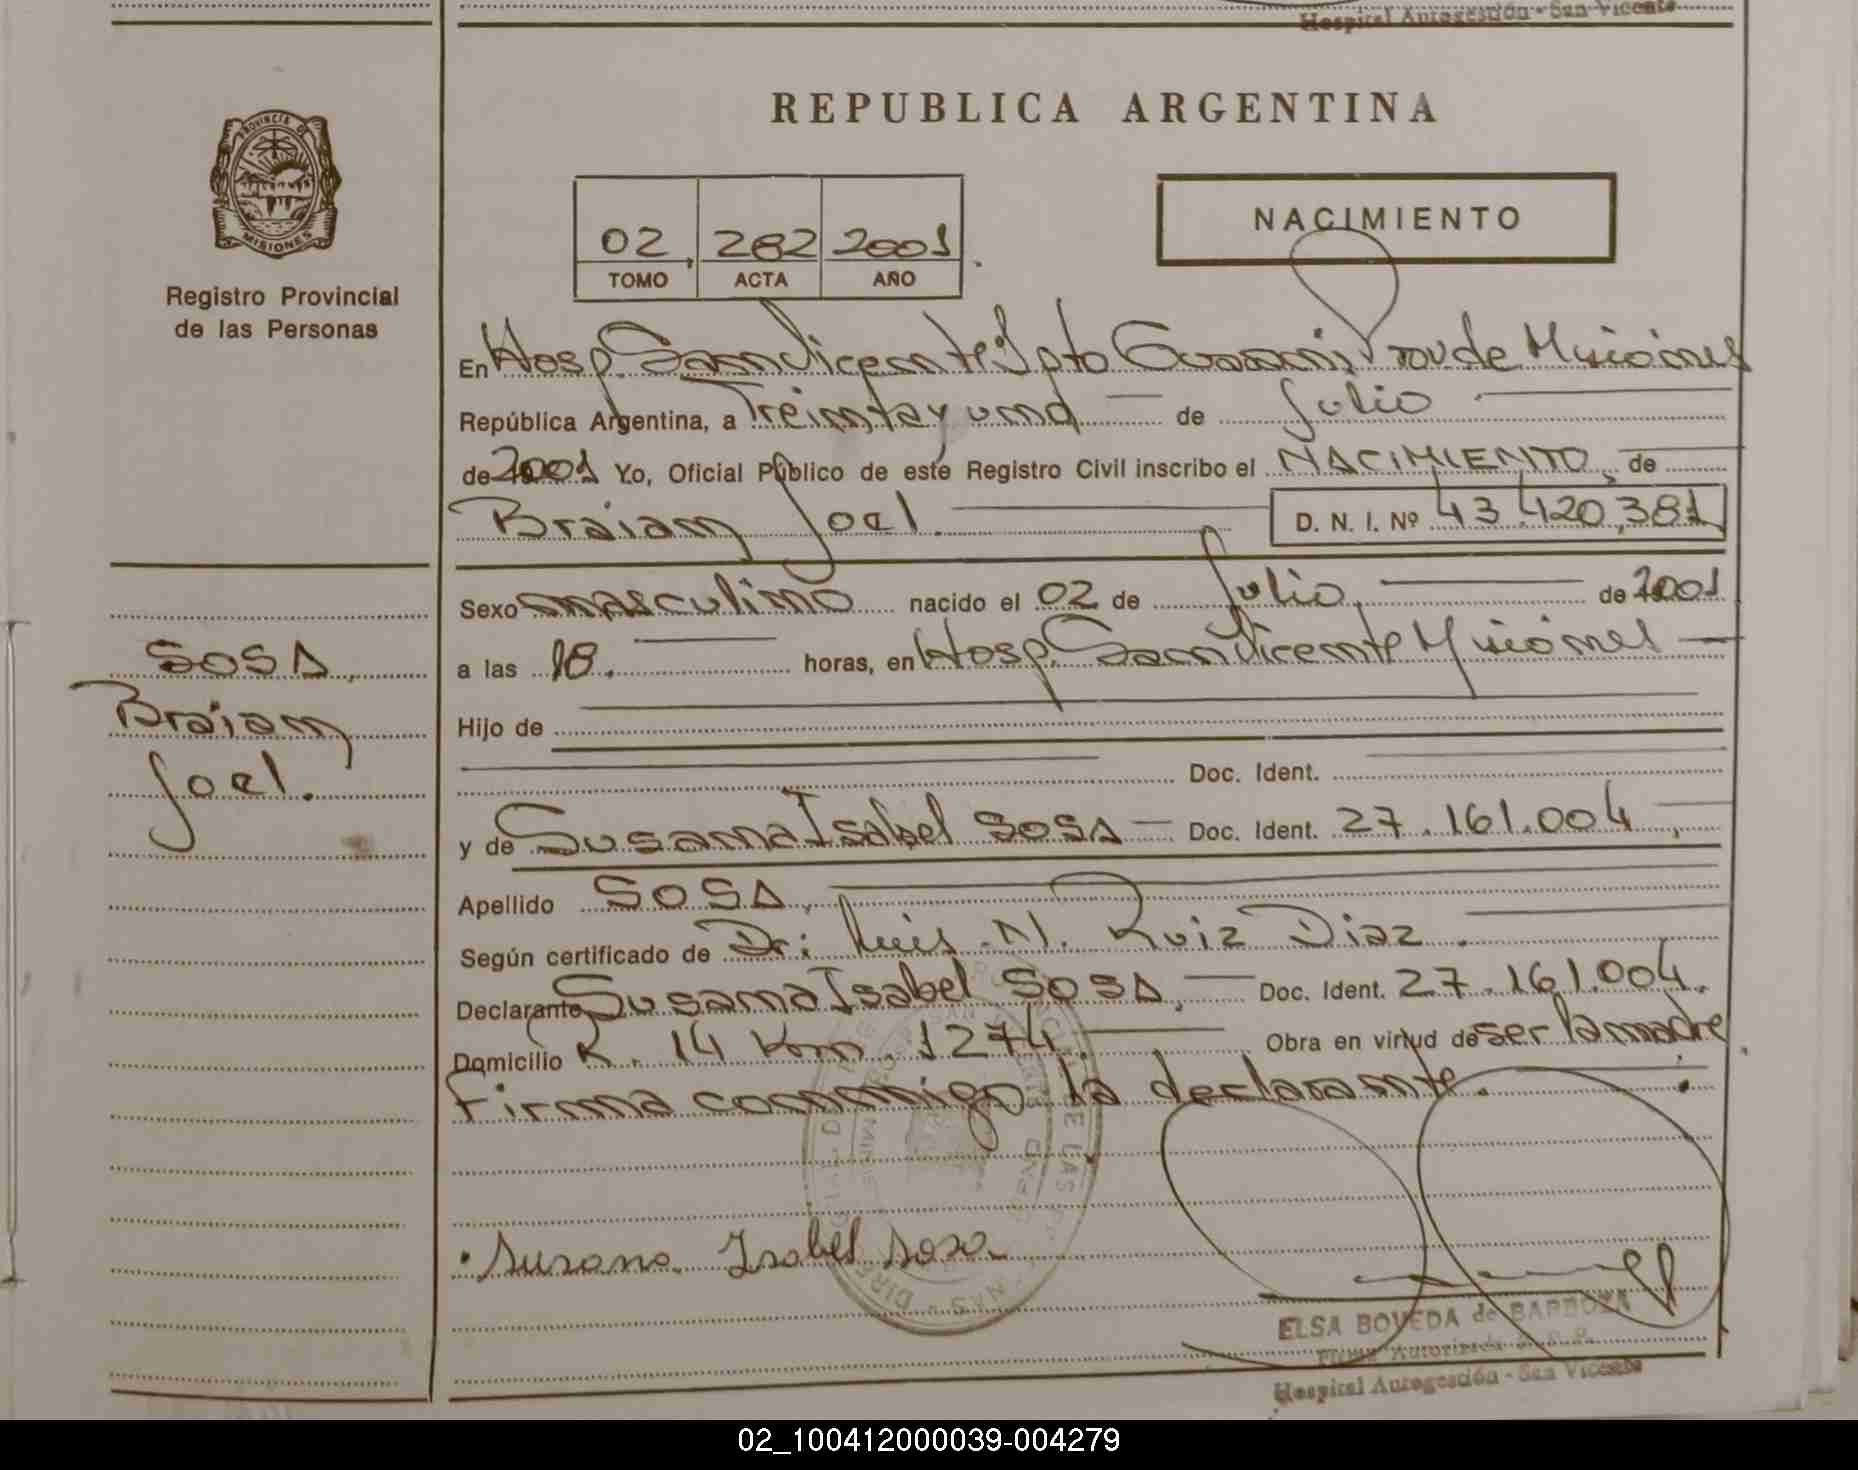 Hospital Autogestión - San Vicente
REPUBLICA ARGENTINA
PROVINCIA DE
MISIONES
Registro Provincial
de las Personas
02 282 2001
TOMO ACTA AÑO
NACIMIENTO
En Hosp. San Vicente Dpto Guaraní Prov de Misiones
República Argentina, a Treinta y uno — de Julio
de 2001 Yo, Oficial Público de este Registro Civil inscribo el NACIMIENTO, de
Braian Joel. D. N. I. Nº 43.420,381
Sexo masculino nacido el 02 de Julio, de 2001
a las 18. horas, en Hosp. San Vicente Misiones —
Hijo de
Doc. Ident.
y de Susana Isabel SOSA — Doc. Ident. 27.161.004
Apellido SOSA,
Según certificado de Dr: Luis N. Ruiz Diaz.
Declarante Susana Isabel SOSA, — Doc. Ident. 27.161.004.
Domicilio R. 14 Km. 1274. Obra en virtud de ser la madre
Firma conmigo la declarante.
SOSA,
Braian
Joel.
Susana Isabel Sosa
ELSA BOVEDA de BARBOZA
Firma Autorizada
Hospital Autogestión - San Vicente
02_100412000039-004279